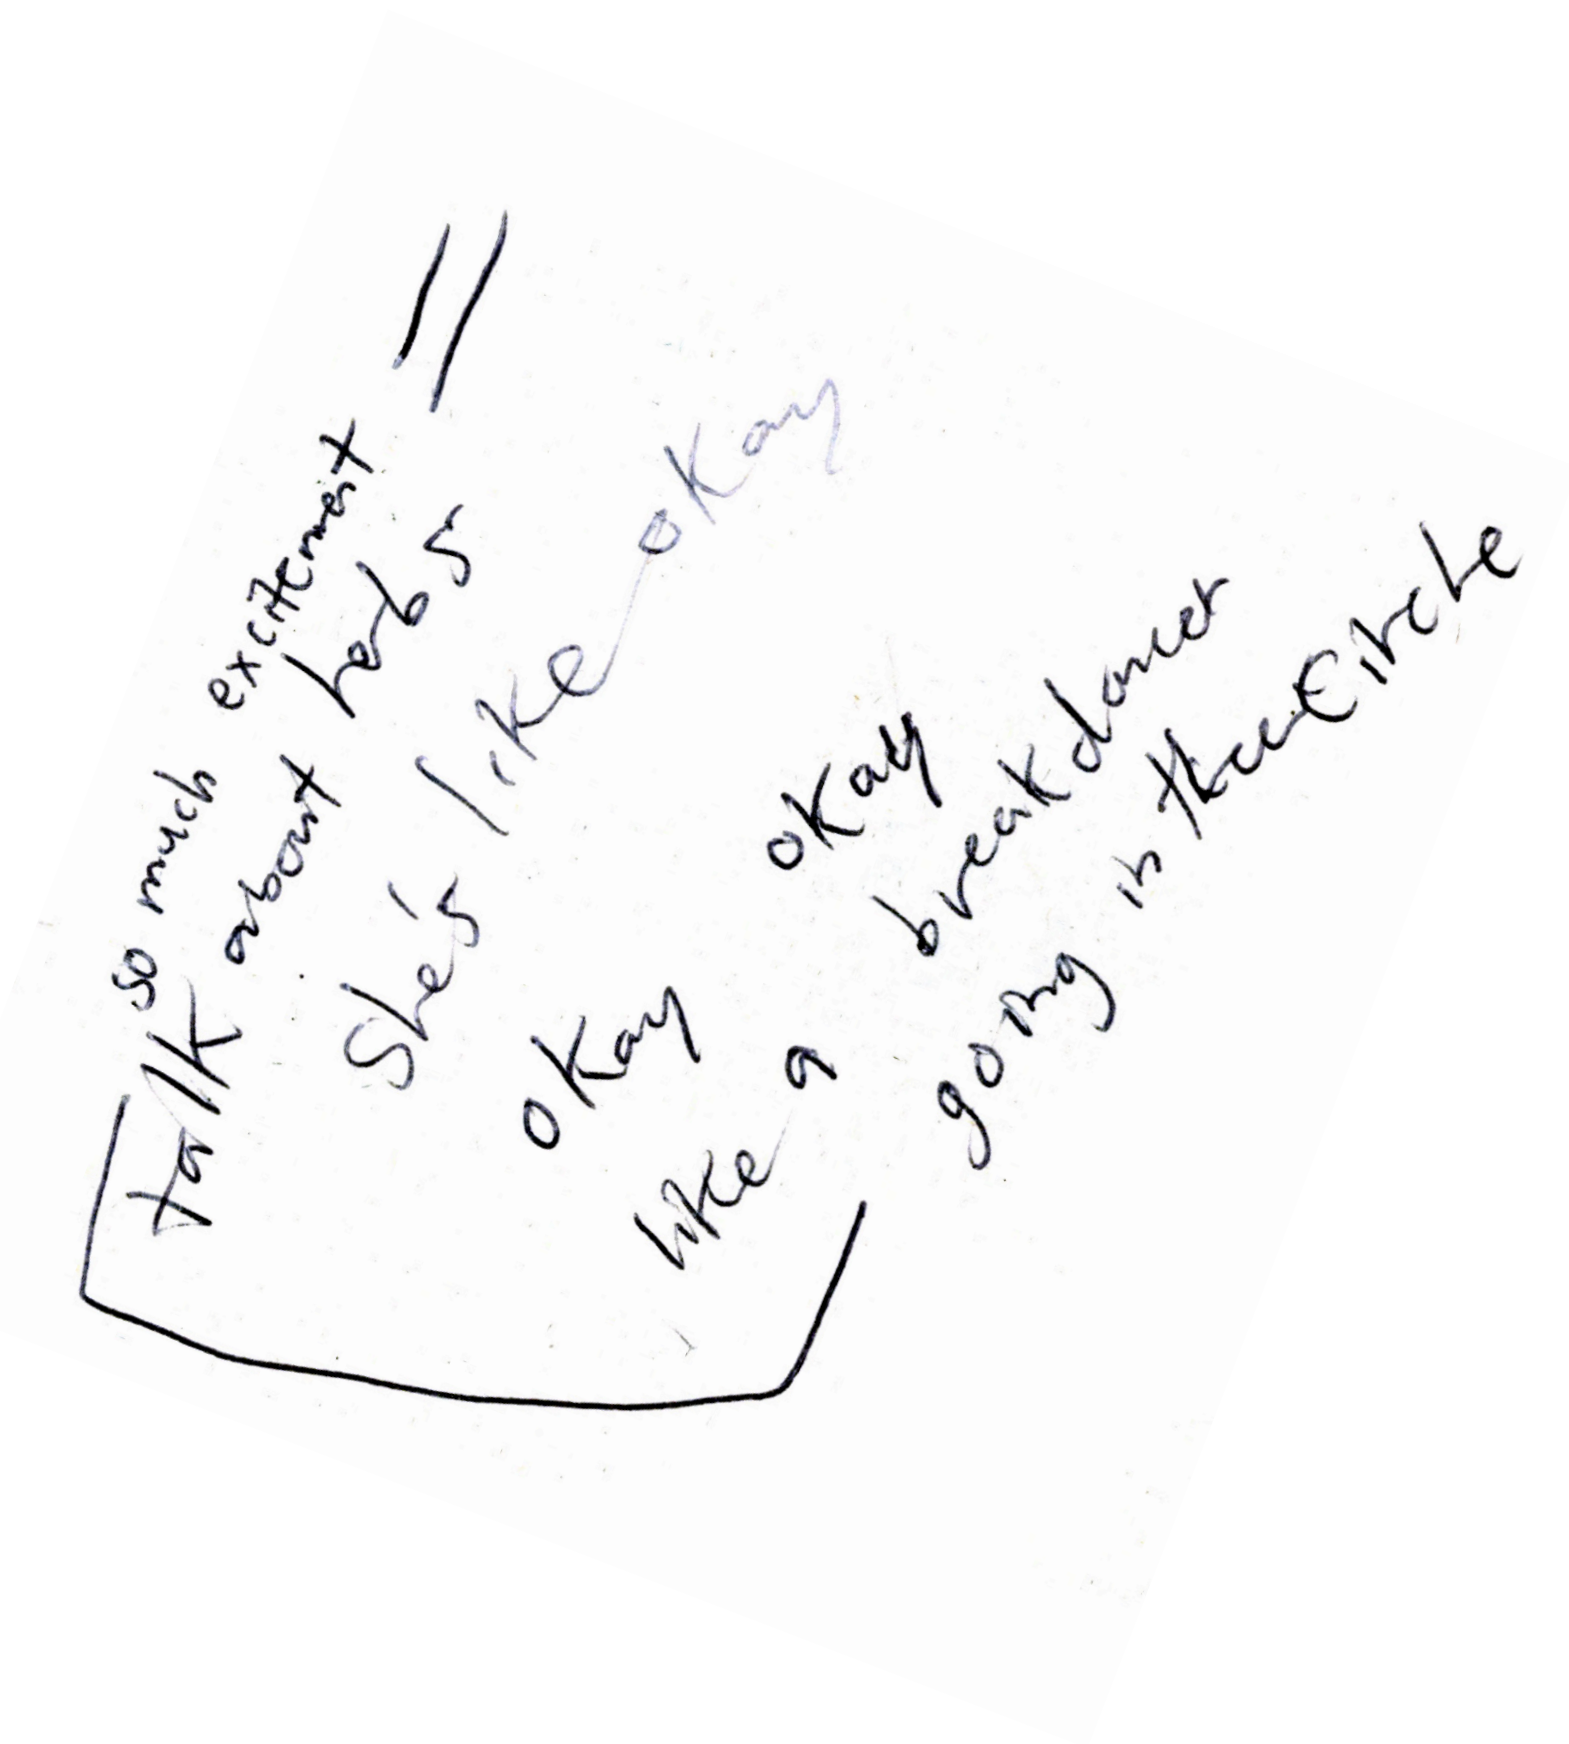 so much excitement
talk about herbs
She's like okay
okay okay
like a break dancer
going in the circle